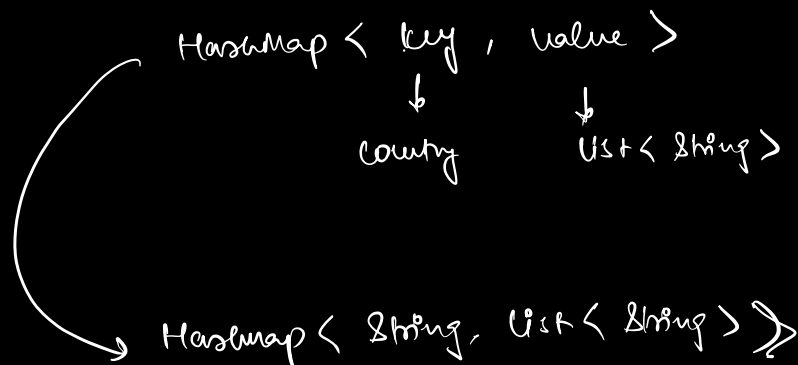 HashMap < key , value >
country List < String >
Hashmap < String, List < String >>